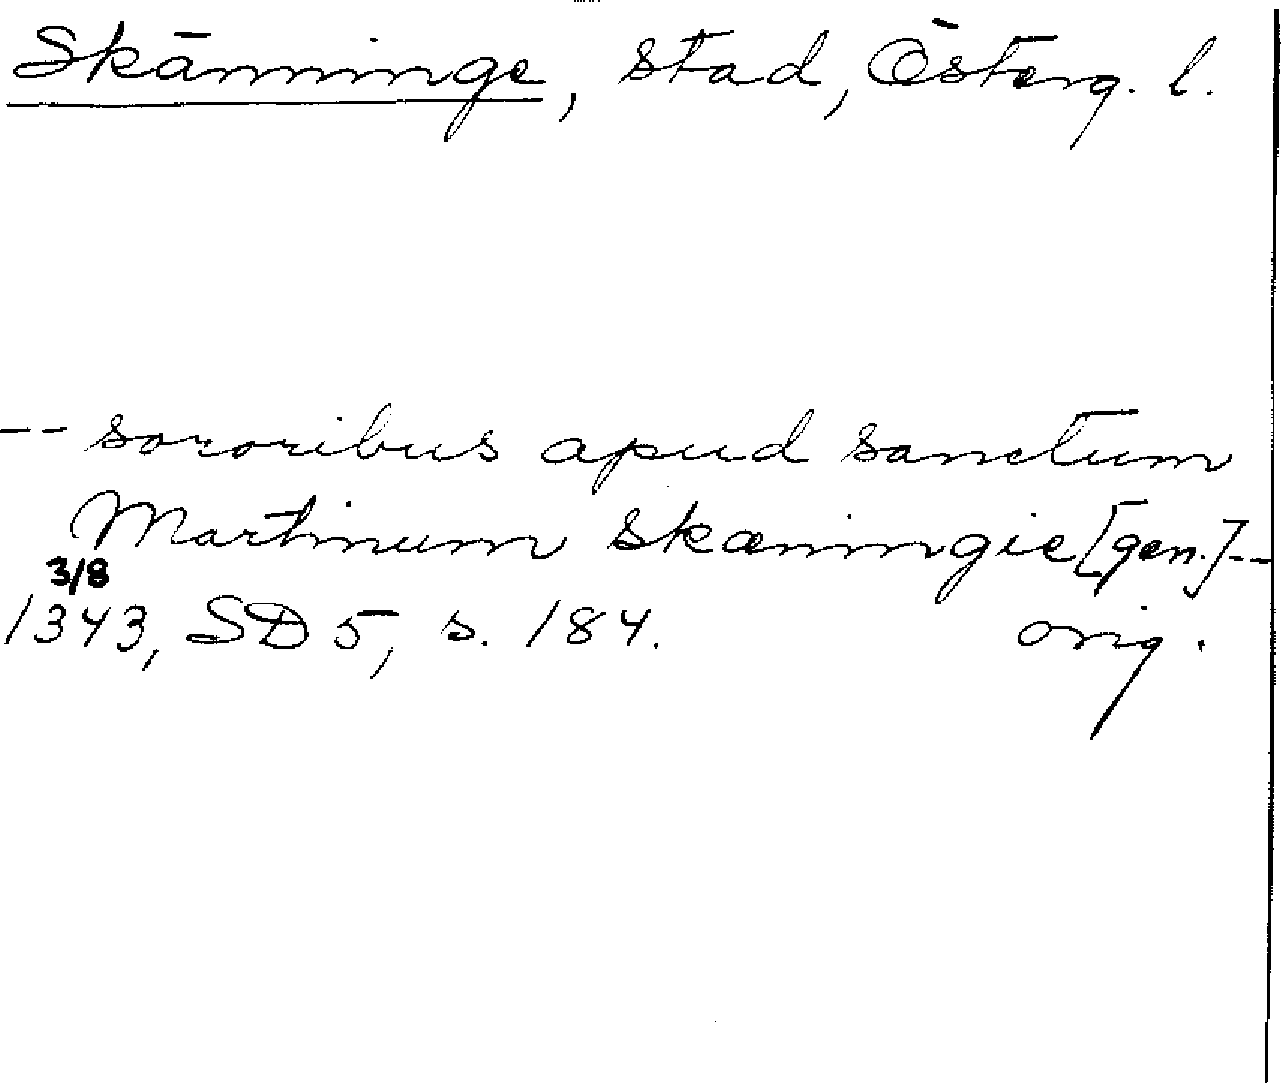 Skänninge, stad, Österg. l.
-- sororibus apud sanctum
Martinum Skæningie [gen.] --
3/8
1343, SD 5, s. 184. orig.